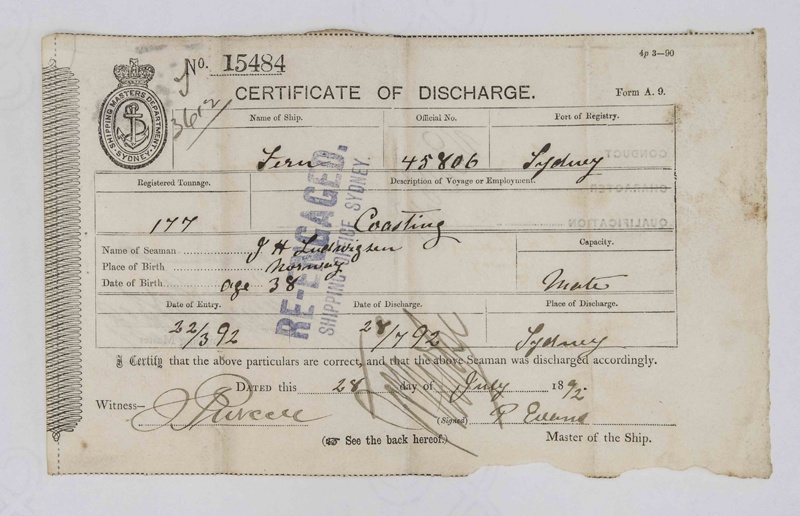 4p 3—90
No. 15484
CERTIFICATE OF DISCHARGE.
Form A. 9.
SHIPPING MASTERS DEPARTMENT.
SYDNEY
3612
Name of Ship. Official No. Port of Registry.
Fern 45806 Sydney
CONDUCT
CHARACTER
QUALIFICATION
Registered Tonnage. Description of Voyage or Employment.
177 Coasting
RE-ENGAGED.
SHIPPING OFFICE SYDNEY.
Name of Seaman J H Ludwigsen
Place of Birth Norway
Date of Birth age 38
Capacity.
Mate
Date of Entry. Date of Discharge. Place of Discharge.
22/3 92 28/7 92 Sydney
I Certify that the above particulars are correct, and that the above Seaman was discharged accordingly.
DATED this 28 day of July 1892
Witness— J Purcell
(Signed) R Evans
(See the back hereof.)
Master of the Ship.